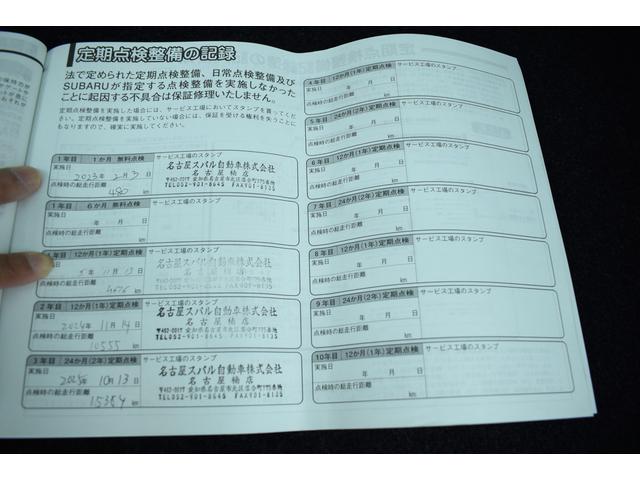 定期点検整備の記録
法で定められた定期点検整備、日常点検整備及び
SUBARUが指定する点検整備を実施しなかった
ことに起因する不具合は保証修理いたしません。
定期点検整備を実施した場合には、サービス工場においてスタンプを貰ってくだ
さい。定期点検整備を実施していない場合には、保証を受ける権利を失うことに
もなりますので、確実に実施してください。
1年目 1か月 無料点検 サービス工場のスタンプ
実施日
2023年 2月3日
点検時の総走行距離
480 km
名古屋スバル自動車株式会社
名古屋楠店
〒462-0011 愛知県名古屋市北区
TEL052-901-8645 FAX901-8135
1年目 6か月 無料点検 サービス工場のスタンプ
実施日
年 月 日
点検時の総走行距離
km
12か月(1年)定期点検 サービス工場のスタンプ
実施日
5年 11月13日
点検時の総走行距離
km
名古屋スバル自動車株式会社
名古屋楠店
2年目 12か月(1年)定期点検 サービス工場のスタンプ
実施日
2024年 11月14日
点検時の総走行距離
10555 km
名古屋スバル自動車株式会社
名古屋楠店
TEL052-901-8645 FAX901-8135
3年目 24か月(2年)定期点検 サービス工場のスタンプ
実施日
2025年 10月13日
点検時の総走行距離
km
名古屋スバル自動車株式会社
名古屋楠店
TEL052-901-8645 FAX901-8135
4年目 12か月(1年)定期点検 サービス工場のスタンプ
実施日
年 月 日
点検時の総走行距離
km
5年目 24か月(2年)定期点検 サービス工場のスタンプ
実施日
年 月 日
点検時の総走行距離
km
6年目 12か月(1年)定期点検 サービス工場のスタンプ
実施日
年 月 日
点検時の総走行距離
km
7年目 24か月(2年)定期点検 サービス工場のスタンプ
実施日
年 月 日
点検時の総走行距離
km
8年目 12か月(1年)定期点検 サービス工場のスタンプ
実施日
年 月 日
点検時の総走行距離
km
9年目 24か月(2年)定期点検 サービス工場のスタンプ
実施日
年 月 日
点検時の総走行距離
km
10年目 12か月(1年)定期点検 サービス工場のスタンプ
実施日
年 月 日
点検時の総走行距離
km